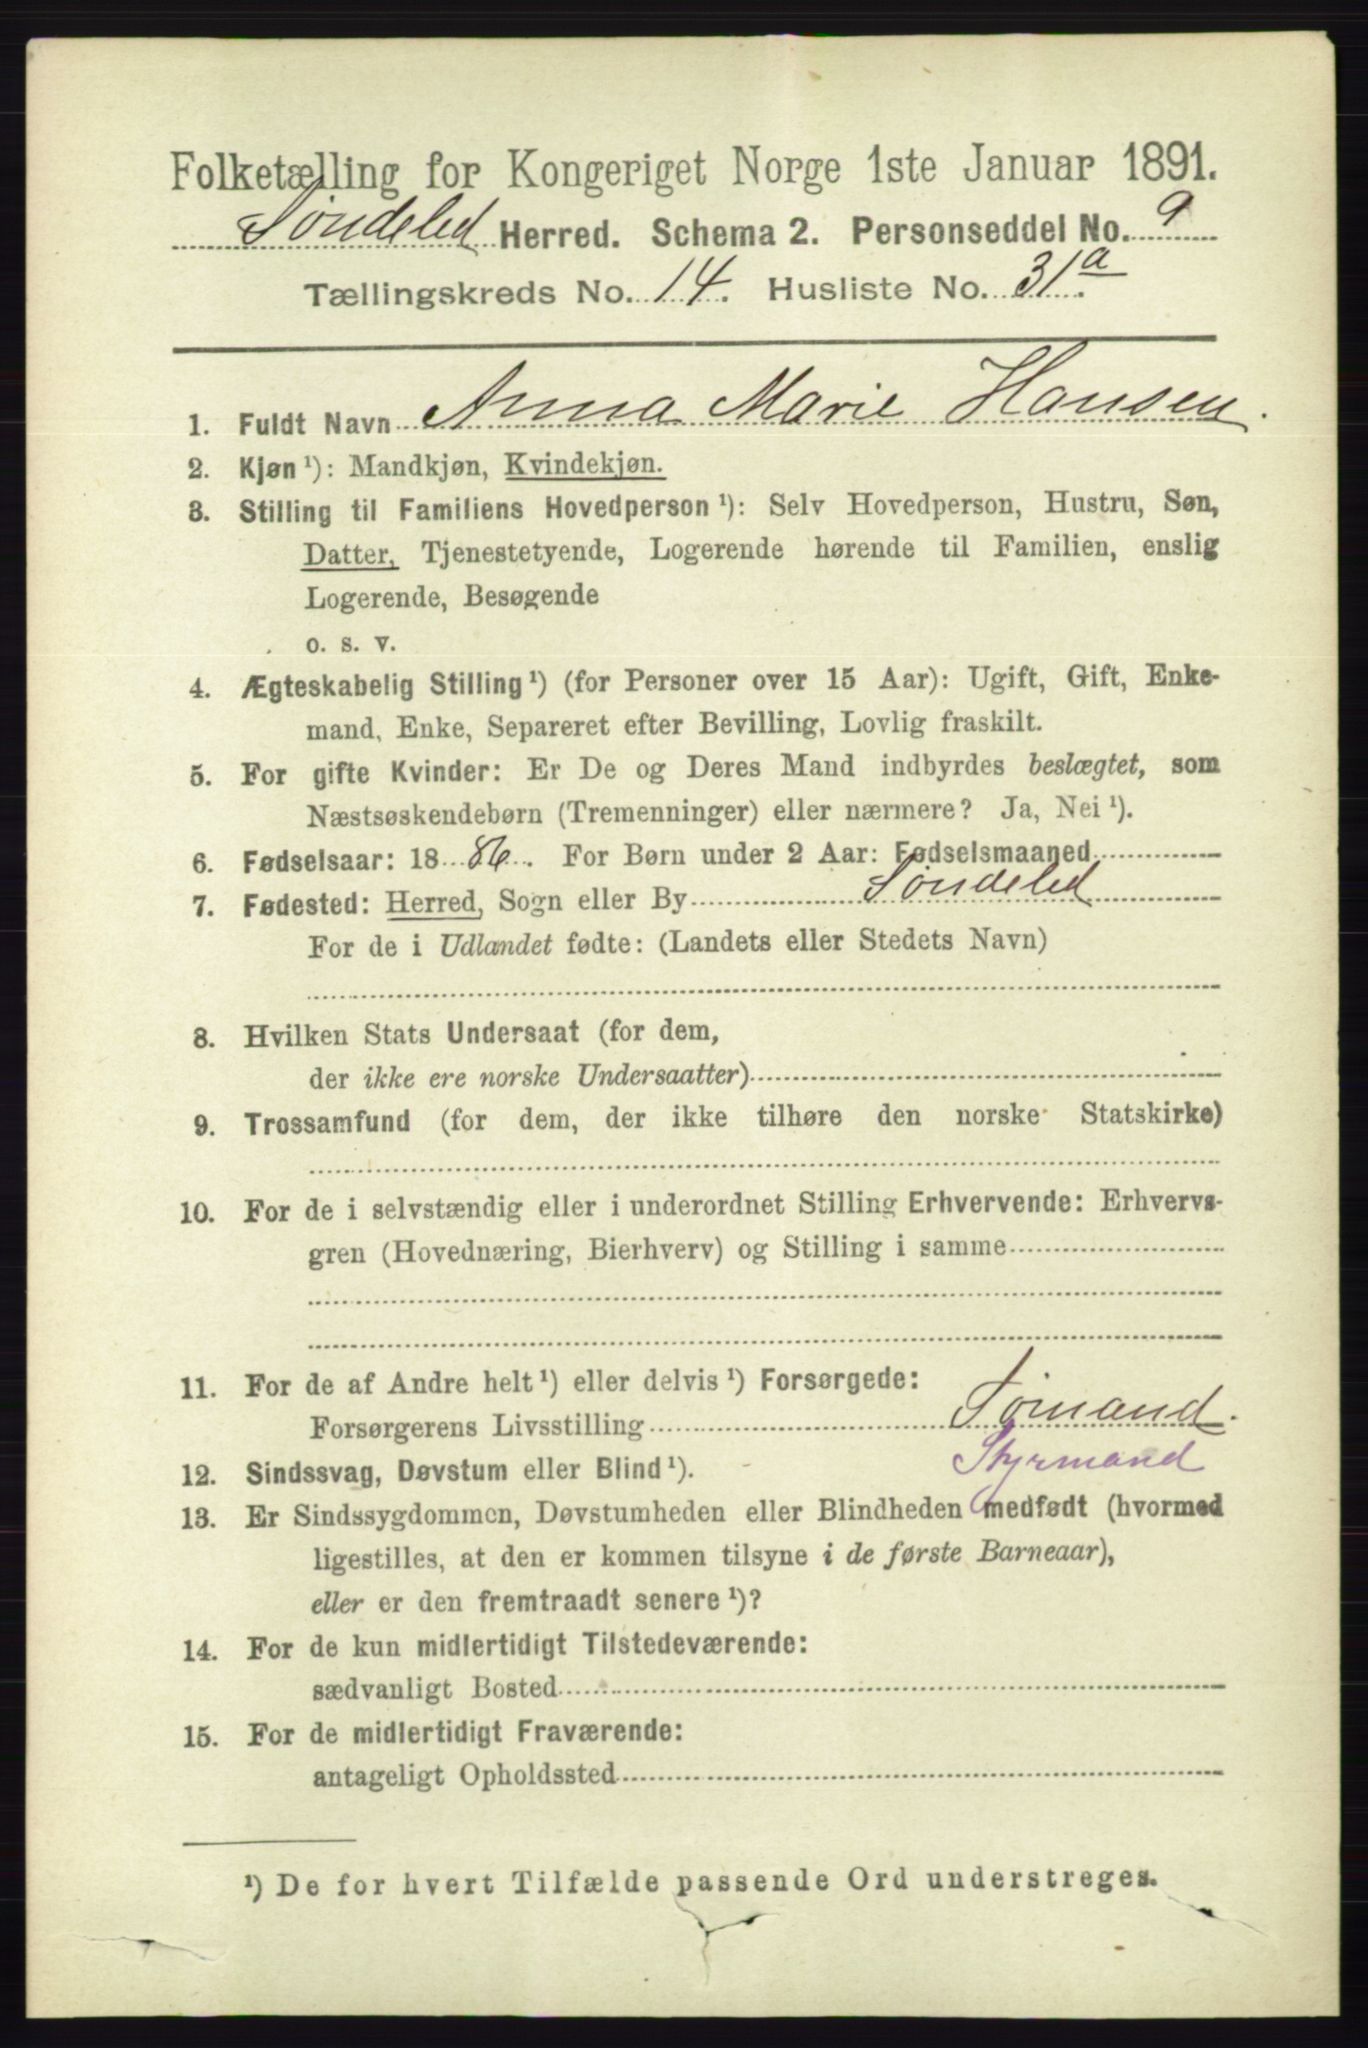 Folketælling for Kongeriget Norge 1ste Januar 1891.
Søndeled Herred. Schema 2. Personseddel No. 9
Tællingskreds No. 14. Husliste No. 31.a
1. Fuldt Navn Anna Marie Hansen.
2. Kjøn ¹): Mandkjøn, Kvindekjøn.
3. Stilling til Familiens Hovedperson ¹): Selv Hovedperson, Hustru, Søn,
Datter, Tjenestetyende, Logerende hørende til Familien, enslig
Logerende, Besøgende
o. s. v.
4. Ægteskabelig Stilling ¹) (for Personer over 15 Aar): Ugift, Gift, Enke-
mand, Enke, Separeret efter Bevilling, Lovlig fraskilt.
5. For gifte Kvinder: Er De og Deres Mand indbyrdes beslægtet, som
Næstsøskendebørn (Tremenninger) eller nærmere? Ja, Nei ¹).
6. Fødselsaar: 1886. For Børn under 2 Aar: Fødselsmaaned
7. Fødested: Herred, Sogn eller By Søndeled
For de i Udlandet fødte: (Landets eller Stedets Navn)
8. Hvilken Stats Undersaat (for dem,
der ikke ere norske Undersaatter)
9. Trossamfund (for dem, der ikke tilhøre den norske Statskirke)
10. For de i selvstændig eller i underordnet Stilling Erhvervende: Erhvervs-
gren (Hovednæring, Bierhverv) og Stilling i samme
11. For de af Andre helt ¹) eller delvis ¹) Forsørgede:
Forsørgerens Livsstilling Sømand.
Styrmand
12. Sindssvag, Døvstum eller Blind ¹).
13. Er Sindssygdommen, Døvstumheden eller Blindheden medfødt (hvormed
ligestilles, at den er kommen tilsyne i de første Barneaar),
eller er den fremtraadt senere ¹)?
14. For de kun midlertidigt Tilstedeværende:
sædvanligt Bosted
15. For de midlertidigt Fraværende:
antageligt Opholdssted
¹) De for hvert Tilfælde passende Ord understreges.